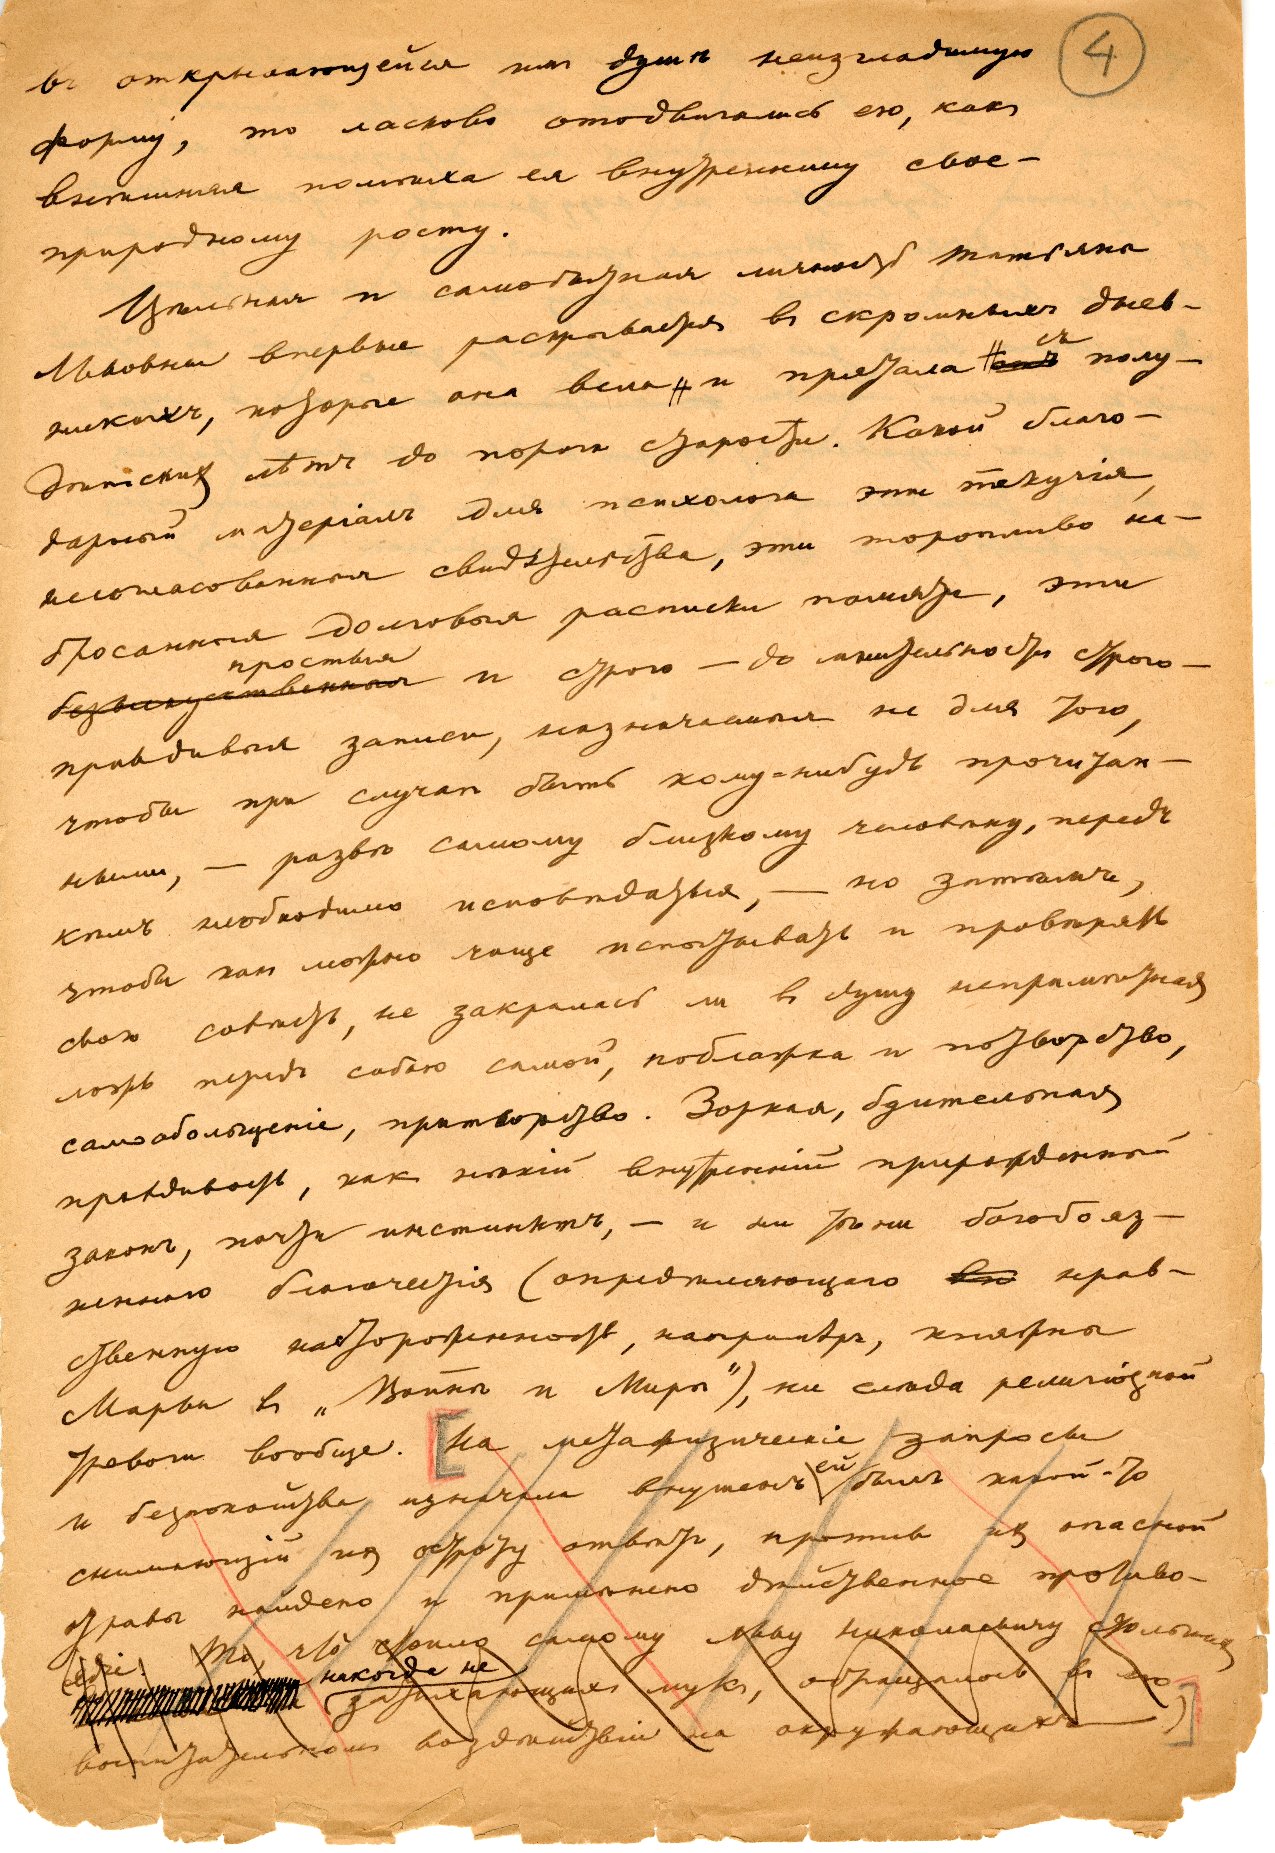 4
въ открывающейся имъ душѣ неизгладимую
форму, то ласково отодвигались ею, какъ
внѣшняя помѣха ея внутреннему свое-
природному росту.
Цѣльная и самобытная личность Татьяны
Львовны впервые раскрывается въ скромныхъ днев-
никахъ, которые она вела и прятала съ полу-
дѣтскихъ лѣтъ до порога старости. Какой благо-
дарный матеріалъ для психолога эти текучія,
несогласованныя свидѣтельства, эти торопливо на-
бросанныя долговыя расписки памяти, эти
простыя
безыскусственныя и строго — до мнительности строго —
правдивыя записи, назначенныя не для того,
чтобы при случаѣ быть кому-нибудь прочитан-
ными, — развѣ самому близкому человѣку, передъ
кѣмъ необходимо исповѣдаться, — но затѣмъ,
чтобы какъ можно чаще испытывать и провѣрять
свою совѣсть, не закралась ли въ душу непримѣтная
ложь передъ собою самой, поблажка и потворство,
самообольщеніе, притворство. Зоркая, бдительная
правдивость, какъ нѣкій внутренній прирожденный
законъ, почти инстинктъ, — и ни тѣни богобояз-
неннаго благочестія (опредѣляющаго нрав-
ственную настороженность, напримѣръ, княжны
Марьи въ „Войнѣ и Мирѣ"), ни слѣда религіозной
тревоги вообще. [На метафизическіе запросы
и безпокойства изначала внушенъ ей былъ какой-то
снимающій ихъ остроту отвѣтъ, противъ ихъ опасной
отравы найдено и примѣнено дѣйственное противо-
ядіе. То, что стоило самому Льву Николаевичу столькихъ
никогда не
затихающихъ мукъ, обращалось въ его
воспитательномъ воздѣйствіи на окружающихъ]